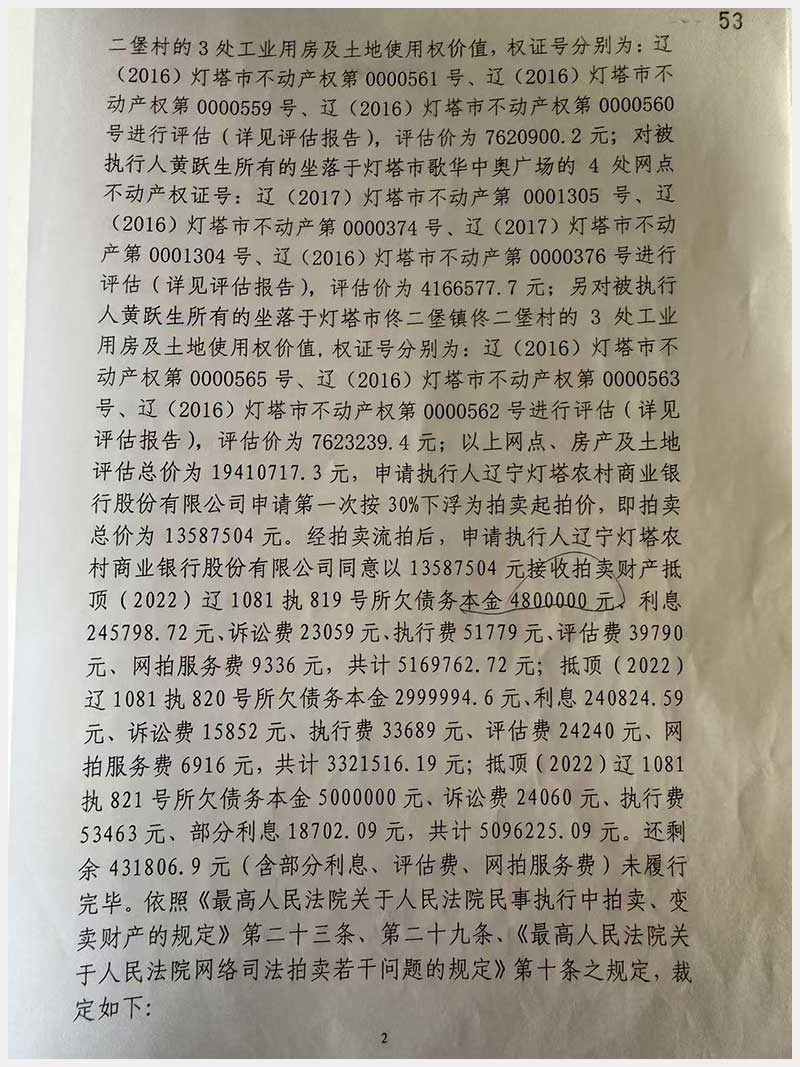 53
二堡村的3处工业用房及土地使用权价值，权证号分别为：辽
（2016）灯塔市不动产权第0000561号、辽（2016）灯塔市不
动产权第0000559号、辽（2016）灯塔市不动产权第0000560
号进行评估（详见评估报告），评估价为7620900.2元；对被
执行人黄跃生所有的坐落于灯塔市歌华中奥广场的 4 处网点
不动产权证号：辽（2017）灯塔市不动产第 0001305 号、辽
（2016）灯塔市不动产第0000374号、辽（2017）灯塔市不动
产第0001304号、辽（2016）灯塔市不动产第0000376号进行
评估（详见评估报告），评估价为4166577.7元；另对被执行
人黄跃生所有的坐落于灯塔市佟二堡镇佟二堡村的 3 处工业
用房及土地使用权价值，权证号分别为：辽（2016）灯塔市不
动产权第0000565号、辽（2016）灯塔市不动产权第0000563
号、辽（2016）灯塔市不动产权第0000562号进行评估（详见
评估报告），评估价为7623239.4元；以上网点、房产及土地
评估总价为19410717.3元，申请执行人辽宁灯塔农村商业银
行股份有限公司申请第一次按30%下浮为拍卖起拍价，即拍卖
总价为13587504元。经拍卖流拍后，申请执行人辽宁灯塔农
村商业银行股份有限公司同意以13587504元接收拍卖财产抵
顶（2022）辽1081执819号所欠债务本金4800000元、利息
245798.72元、诉讼费23059元、执行费51779元、评估费39790
元、网拍服务费9336元，共计5169762.72元；抵顶（2022）
辽1081执820号所欠债务本金2999994.6元、利息240824.59
元、诉讼费15852元、执行费33689元、评估费24240元、网
拍服务费6916元，共计3321516.19元；抵顶（2022）辽1081
执821号所欠债务本金5000000元、诉讼费24060元、执行费
53463元、部分利息18702.09元，共计5096225.09元。还剩
余431806.9元（含部分利息、评估费、网拍服务费）未履行
完毕。依照《最高人民法院关于人民法院民事执行中拍卖、变
卖财产的规定》第二十三条、第二十九条、《最高人民法院关
于人民法院网络司法拍卖若干问题的规定》第十条之规定，裁
定如下：
2